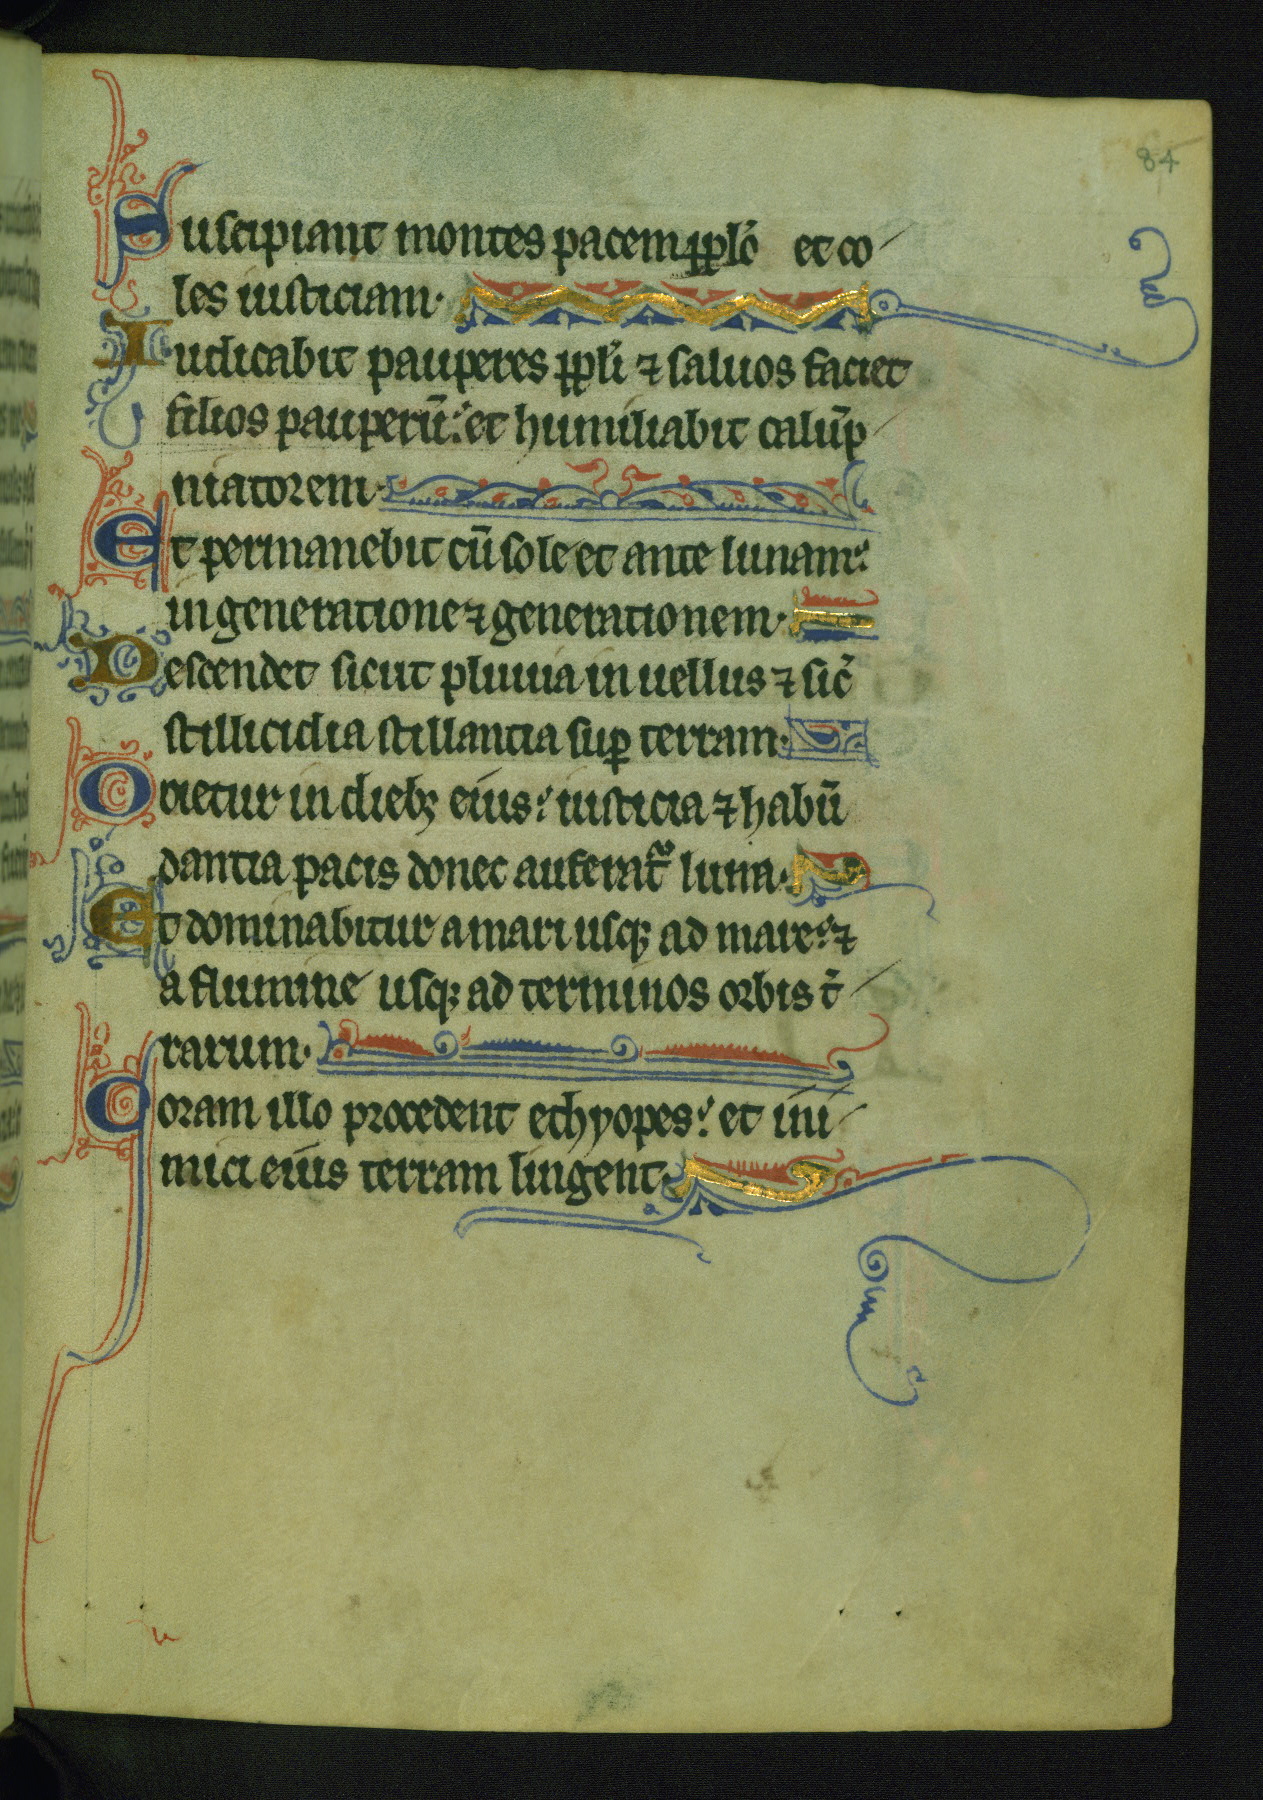 84
Suscipiant montes pacem pplo et co
les iusticiam.
Iudicabit pauperes ppli ⁊ saluos faciet
filios pauperū: et humiliabit calūp
niatorem.
Et permanebit cū sole et ante lunam:
in generatione ⁊ generationem.
Descendet sicut pluuia in uellus ⁊ sic̄
stillicidia stillantia suꝑ terram.
Orietur in diebꝫ eius: iusticia ⁊ habū
dantia pacis donec auferat᷑ luna.
Et dominabitur a mari usqꝫ ad mare: ⁊
a flumine usqꝫ ad terminos orbis t̄
rarum.
Coram illo procedent ethyopes: et ini
mici eius terram lingent.